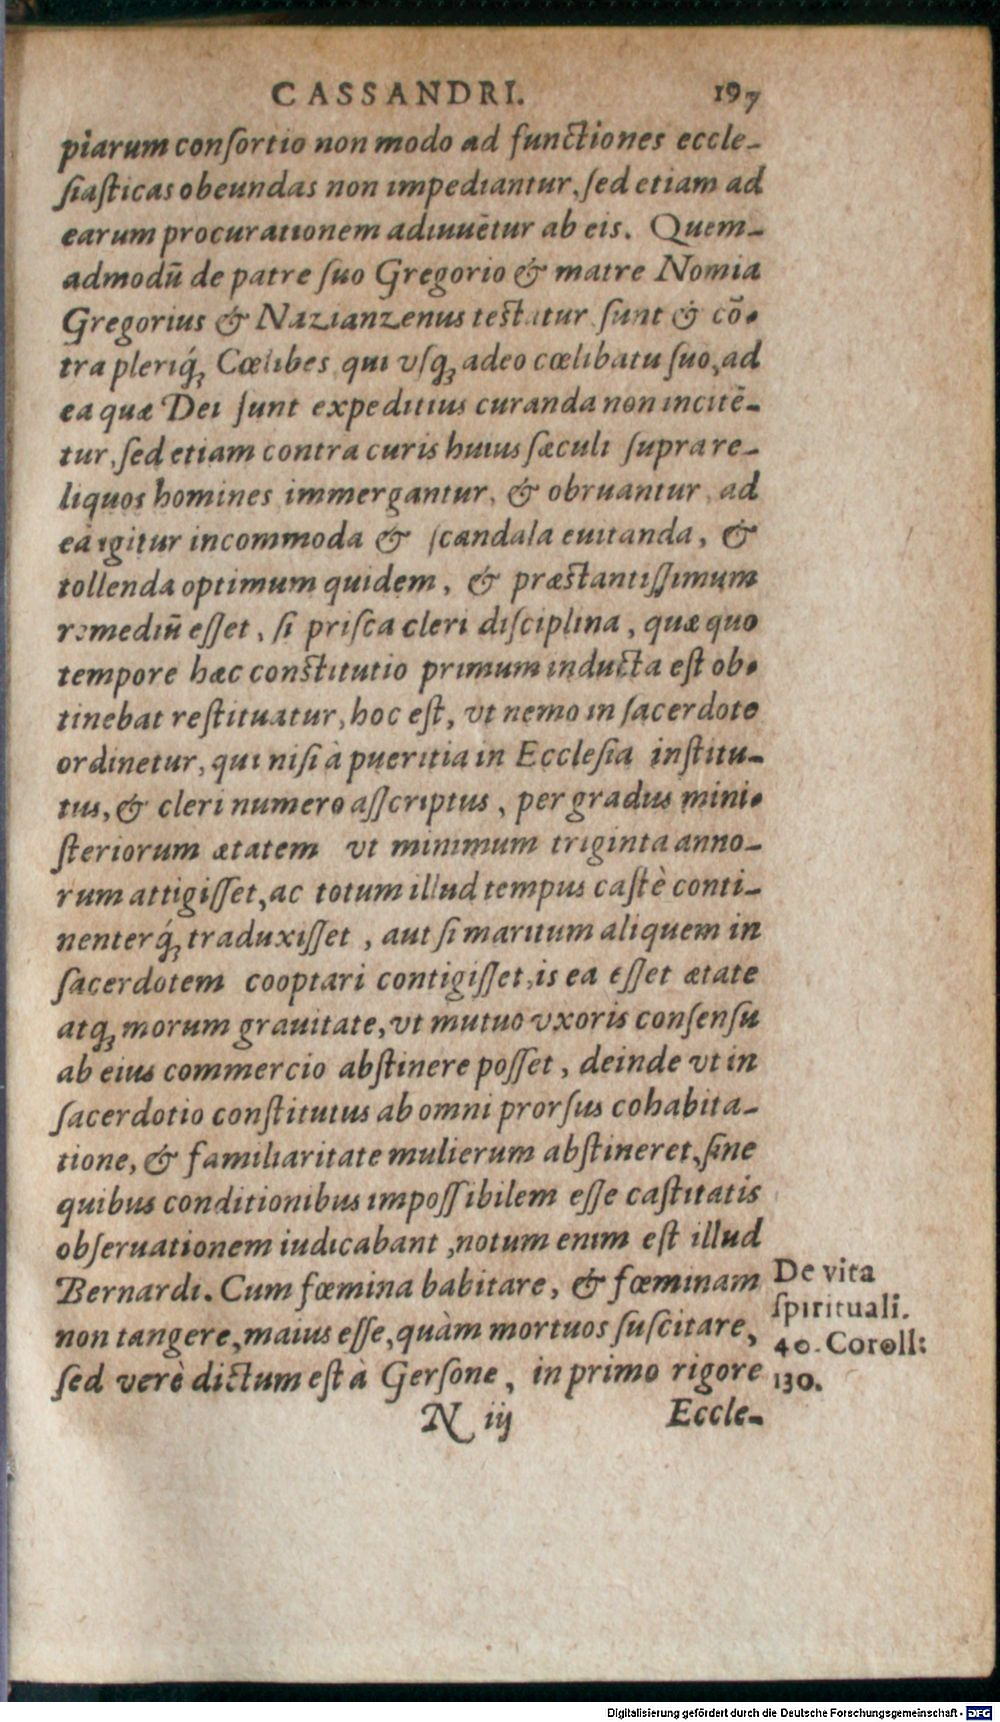 CASSANDRI. 197
piarum conſortio non modo ad functiones eccle-
ſiaſticas obeundas non impediantur, ſed etiam ad
earum procurationem adiuuētur ab eis. Quem-
admodū de patre ſuo Gregorio & matre Nomia
Gregorius & Nazianzenus testatur ſunt & cō-
tra pleriq́; Cœlibes qui vſq; adeo cœlibatu ſuo, ad
ea quæ Dei ſunt expeditius curanda non incitē-
tur, ſed etiam contra curis huius ſæculi ſupra re-
liquos homines immergantur, & obruantur, ad
ea igitur incommoda & ſcandala euitanda, &
tollenda optimum quidem, & præstantiſſimum
remediū eſſet, ſi priſca cleri diſciplina, quæ quo
tempore hæc constitutio primum inducta eſt ob-
tinebat reſtituatur, hoc eſt, vt nemo in ſacerdote
ordinetur, qui niſi à pueritia in Eccleſia inſtitu-
tus, & cleri numero aſſcriptus, per gradus mini-
ſteriorum ætatem vt minimum triginta anno-
rum attigiſſet, ac totum illud tempus caſtè conti-
nenterq́; traduxiſſet, aut ſi maritum aliquem in
ſacerdotem cooptari contigiſſet, is ea eſſet ætate
atq; morum grauitate, vt mutuo vxoris conſenſu
ab eius commercio abſtinere poſſet, deinde vt in
ſacerdotio conſtitutus ab omni prorſus cohabita-
tione, & familiaritate mulierum abſtineret, ſine
quibus conditionibus impoſſibilem eſſe caſtitatis
obſeruationem iudicabant, notum enim eſt illud
Bernardi. Cum fœmina babitare, & fœminam
non tangere, maius eſſe, quàm mortuos ſuſcitare,
ſed verè dictum eſt à Gerſone, in primo rigore
De vita
ſpirituali.
40. Coroll:
130.
N iij Eccle-
Digitalisierung gefördert durch die Deutsche Forschungsgemeinschaft - DFG